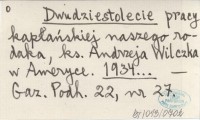 0
Dwudziestolecie pracy
kapłańskiej naszego ro-
daka, ks. Andrzeja Wilczka
w Ameryce. 1934... —
Gaz. Podh. 22, nr 27.